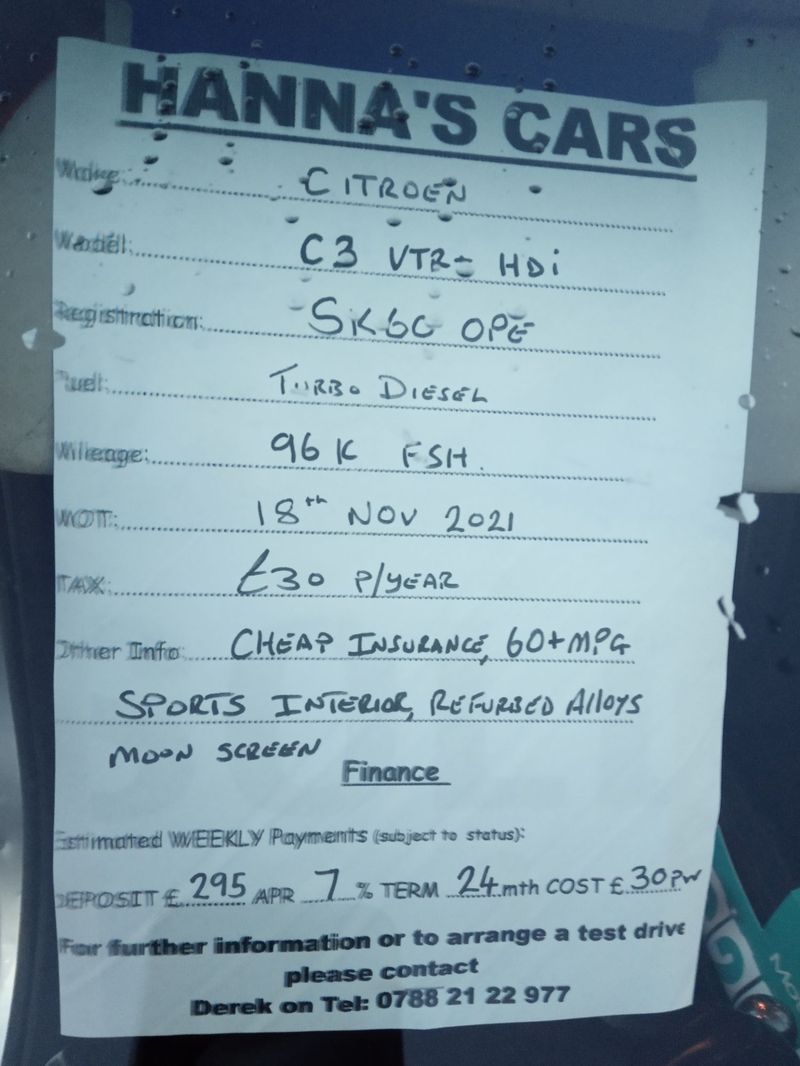 HANNA'S CARS
Make: CITROEN
Model: C3 VTR- HDi
Registration: SK60 OPE
Fuel: TURBO DIESEL
Mileage: 96K FSH.
MOT: 18th NOV 2021
TAX: £30 P/YEAR
Other Info: CHEAP INSURANCE, 60+MPG
SPORTS INTERIOR, REFURBED AlloYS
MOON SCREEN
Finance
Estimated WEEKLY Payments (subject to status):
DEPOSIT £ 295 APR 7 % TERM 24 mth COST £ 30 PW
For further information or to arrange a test drive
please contact
Derek on Tel: 0788 21 22 977